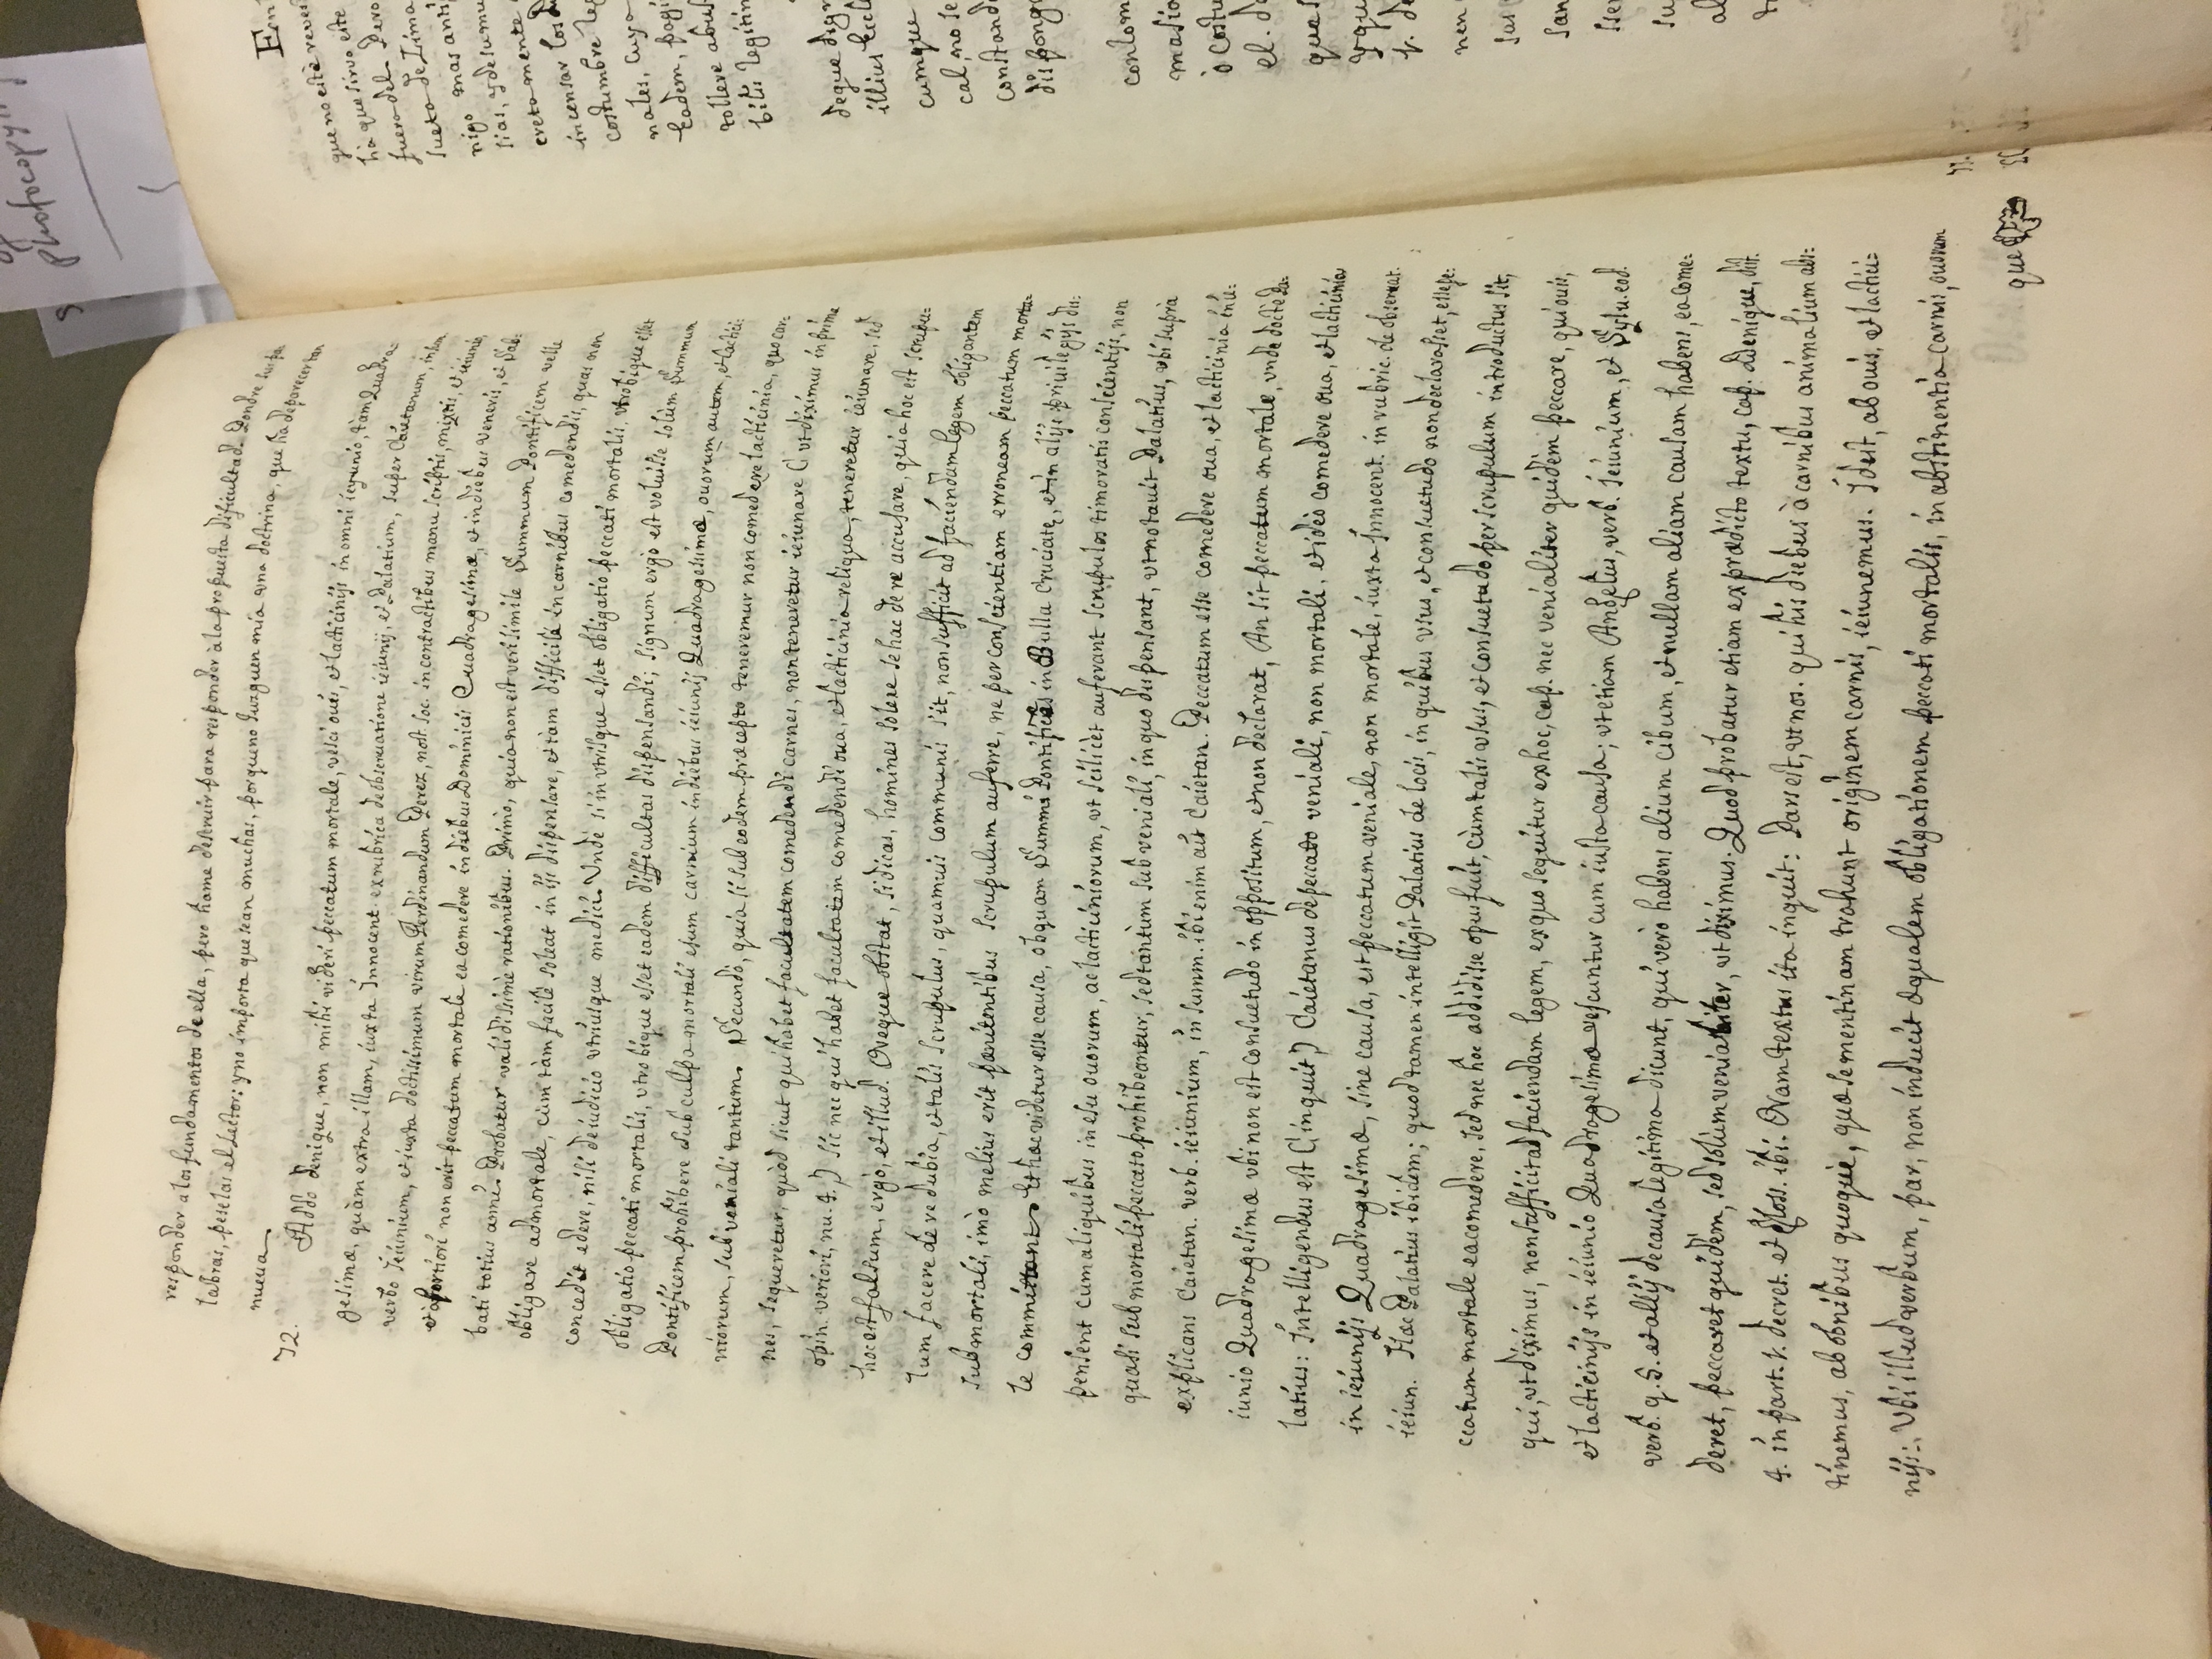 photocopying
responder a los fundamentos de ella, pero hame deservir para responder à la propuesta dificultad. Pondre sus pa-
labras, peselas el Lector: y no importa que sean muchas, porque no Iuzguen mia vna doctrina, que ha deparecer tan
nueua.
72. Addo denique, non mihi videri peccatum mortale, vesci ouis, et lacticinijs in omni ieyunio, tàm Quadra-
gesimæ, quàm extra illam, iuxta Innocent. ex rubrica de obseruatione ieiunij, et Palatium, super Caietanum, in sum.
verbo Ieiunium, et iuxta doctissimum virum Ferdinandum Perez, nost. soc. in contractibus manu scriptis, mixtis, et ieiunio,
et à fortiori non erit peccatum mortale ea comedere in diebus Dominicis Quadragesimæ, et in diebus Veneris, et Sab=
bati totius anni. Probatur validissimè rationibus. Primò, quia non est verisimile Summum Pontificem velle
obligare ad mortale, cùm tàm facilè soleat in ijs dispensare, et tàm difficilè in carnibus comedendis, quas non
concedit edere, nisi de iudicio vtriusque medici. Vndè si in vtrisque esset obligatio peccati mortalis, vtrobique esset
obligatio peccati mortalis, vtrobique esset eadem difficultas dispensandi; signum ergò est voluisse solùm Summum
Pontificem prohibere sub culpa mortali esum carnium in diebus ieiunij Quadragesimæ, ouorum autem, et lactici-
niorum, sub veniali tantùm. Secundò, quia si sub eodem præcepto teneremur non comedere lacticinia, quo car-
nes, sequeretur, quòd sicut qui habet facultatem comedendi carnes, non teneretur ieiunare (vt diximus in prima
opin. veriori, nu. 4.) sic nec qui habet facultatem comedendi oua, et lacticinia reliqua, teneretur ieiunare, sed
hoc est falsum, ergò, et illud. Neque obstat, si dicas, homines solere se hac de re accusare, quia hoc est scrupu=
lum facere de re dubia, et talis scrupulus, quamuis communis sit, non sufficit ad faciendam legem obligantem
sub mortali, imò melius erit pænitentibus scrupulum auferre, ne per conscientiam erroneam peccatum morta-
le committant. Et hæc videtur esse causa, ob quam Summi Pontifices in Bulla Cruciatę, et in alijs priuilegijs dis-
pensent cum aliquibus in esu ouorum, ac lacticiniorum, vt scilicèt auferant scrupulos timoratis conscientijs, non
quasi sub mortali peccato prohibeantur, sed tantùm sub veniali, in quo dispensant, vt notauit Palatius, vbi suprà
explicans Caietan. verb. ieiunium, in summ. ibi enim ait Caietan. Peccatum esse comedere oua, et lacticinia in ie-
iunio Quadragesimæ vbi non est consuetudo in oppositum, et non declarat, An sit peccatum mortale, vnde doctè Pa-
latius: Intelligendus est (inquit) Caietanus de peccato veniali, non mortali, et ideò comedere oua, et lacticinia
in ieiunijs Quadragesimæ, sine causa, est peccatum veniale, non mortale, iuxta Innocent. in rubric. de obseruat.
ieiun. Hæc Palatius ibidem; quod tamen intelligit Palatius de locis, in quibus vsus, et consuetudo non declarasset, esse pe-
ccatum mortale ea comedere, sed nec hoc addidisse opus fuit, cùm talis vsus, et consuetudo per scrupulum introductus sit,
qui, vt diximus, non sufficit ad faciendam legem, ex quo sequitur ex hoc, cap. nec venialiter quidèm peccare, qui ouis,
et lacticinijs in ieiunio Quadragesimæ vescuntur cum iusta causa; vt etiam Angelus, verb. Ieiunium, et Sylu. eod.
verb. q. 5. et allij de causa legitima dicunt, qui verò habens alium cibum, et nullam aliam causam habens, ea come-
deret, peccaret quidèm, sed solùm venialiter, vt diximus. Quod probatur etiam ex prædicto textu, cap. Denique, dist.
4. in part. 1. decret. et Gloss. ibi. Nam textus ita inquit: Pars est, vt nos. qui his diebus à carnibus animalium abs=
tinemus, ab obnibus quoquè, quæ sementinam trahunt originem carnis, ieiunemus. Idest, ab ouis, et lactici=
nijs: Vbi illud verbum, par, non inducit æqualem obligationem peccati mortalis, in abstinentia carnis, ouorum
que
que no estè reves
hà que sirvo este
fuero del. Pero
sueta de Lima
nigo mas anti
sias, y de sumu
cretamente
incensar los
costumbre leg
nales, cuya
Eadem, pagi
tollere abus
bilis legitim
deque dign
illius Eccl
cumque
cal, no se
constand
dis pong
conlom
masio
ò costu
el. d
que s
y qu
1. de
nen
sus
san
sse
su
al